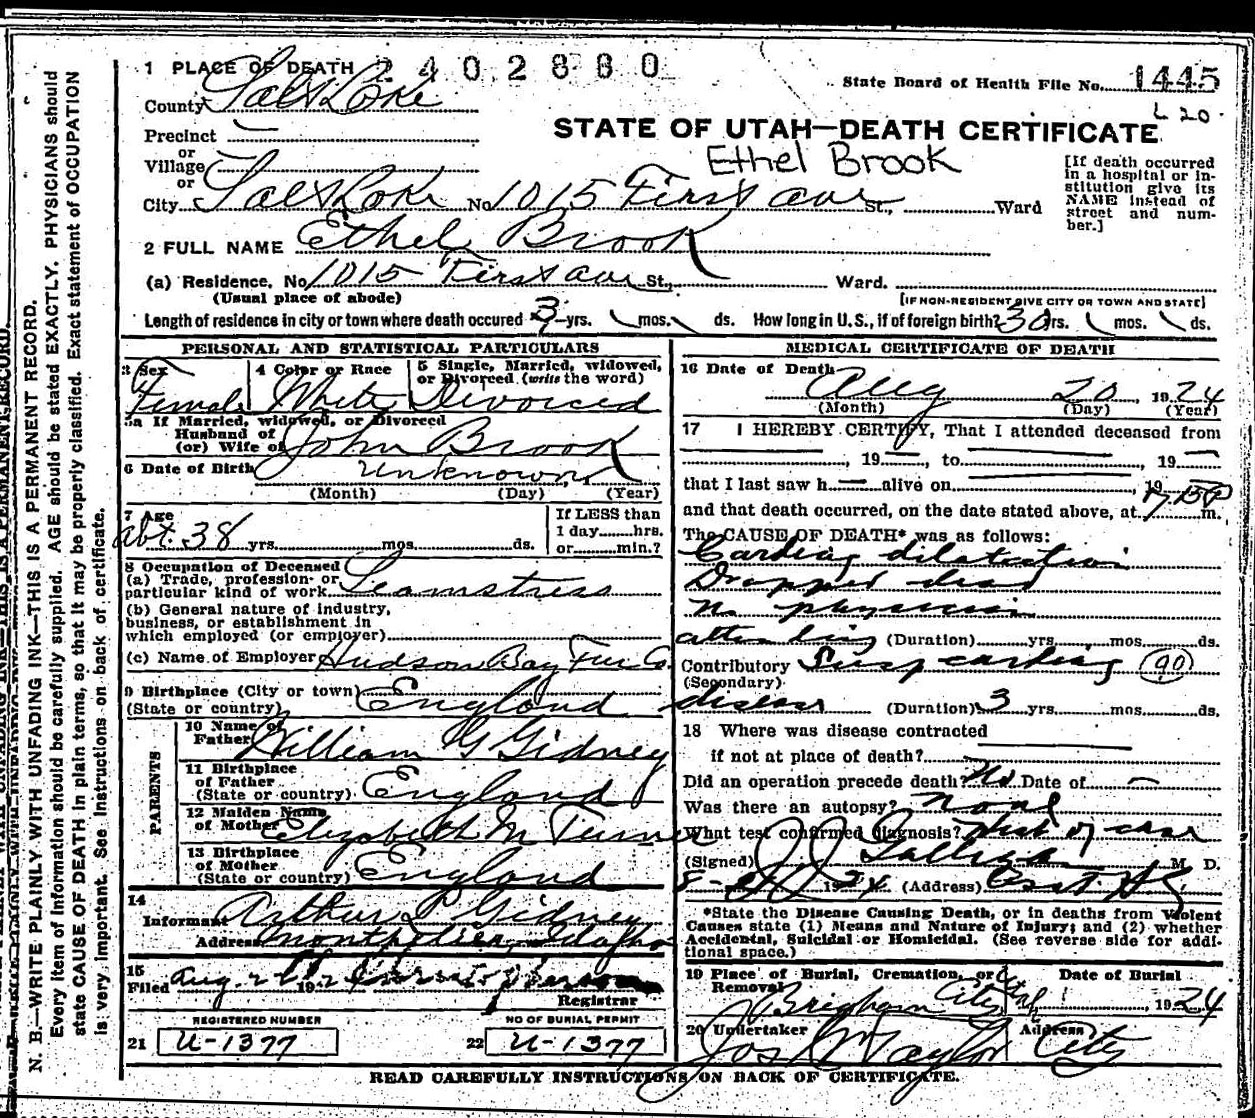 1 PLACE OF DEATH 2402880
State Board of Health File No. 1445
County Salt Lake
L 20
Precinct
STATE OF UTAH—DEATH CERTIFICATE
or
Village
Ethel Brook
or
City Salt Lake No 1015 First ave St., Ward
[If death occurred in a hospital or in-
stitution give its
NAME instead of
street and num-
ber.]
2 FULL NAME Ethel Brook
(a) Residence, No 1015 First ave St., Ward.
(Usual place of abode)
[IF NON-RESIDENT GIVE CITY OR TOWN AND STATE]
Length of residence in city or town where death occured 3 yrs. mos. ds. How long in U.S., if of foreign birth? 30 yrs. mos. ds.
PERSONAL AND STATISTICAL PARTICULARS
3 Sex
Female
4 Color or Race
White
5 Single, Married, widowed,
or Divorced (write the word)
Divorced
5a If Married, widowed, or Divorced
Husband of
(or) Wife of John Brook
6 Date of Birth unknown
(Month) (Day) (Year)
7 Age
abt. 38 yrs. mos. ds.
If LESS than
1 day hrs.
or min.?
8 Occupation of Deceased
(a) Trade, profession or
particular kind of work Seamstress
(b) General nature of industry,
business, or establishment in
which employed (or employer)
(c) Name of Employer Hudson Bay Fur Co.
9 Birthplace (City or town)
(State or country) England
PARENTS
10 Name of
Father William G Gidney
11 Birthplace
of Father
(State or country) England
12 Maiden Name
of Mother Elizabeth M Turner
13 Birthplace
of Mother
(State or country) England
14
Informant Arthur L Gidney
Address Montpelier, Idaho
15
Filed Aug. 19
Registrar
REGISTERED NUMBER
21 U-1377
NO OF BURIAL PERMIT
22 U-1377
MEDICAL CERTIFICATE OF DEATH
16 Date of Death Aug 20, 1924
(Month) (Day) (Year)
17 I HEREBY CERTIFY, That I attended deceased from
, 19 , to , 19
that I last saw h alive on , 19
and that death occurred, on the date stated above, at 7:15 P m.
The CAUSE OF DEATH* was as follows:
Cardiac dilatation
Dropped dead
No physician
attending (Duration) yrs. mos. ds.
Contributory Susp cardiac (90)
(Secondary)
disease (Duration) 3 yrs. mos. ds.
18 Where was disease contracted
if not at place of death?
Did an operation precede death? No Date of
Was there an autopsy? none
What test confirmed diagnosis? Hist of case
(Signed) M. D.
1924 (Address)
*State the Disease Causing Death, or in deaths from Violent
Causes state (1) Means and Nature of Injury; and (2) whether
Accidental, Suicidal or Homicidal. (See reverse side for addi-
tional space.)
19 Place of Burial, Cremation, or
Removal
Brigham City, Utah
Date of Burial
1924
20 Undertaker
Jos Wm Taylor
Address
City
READ CAREFULLY INSTRUCTIONS ON BACK OF CERTIFICATE.
N. B.—WRITE PLAINLY WITH UNFADING INK—THIS IS A PERMANENT RECORD.
Every item of information should be carefully supplied. AGE should be stated EXACTLY. PHYSICIANS should
state CAUSE OF DEATH in plain terms, so that it may be properly classified. Exact statement of OCCUPATION
is very important. See Instructions on back of certificate.